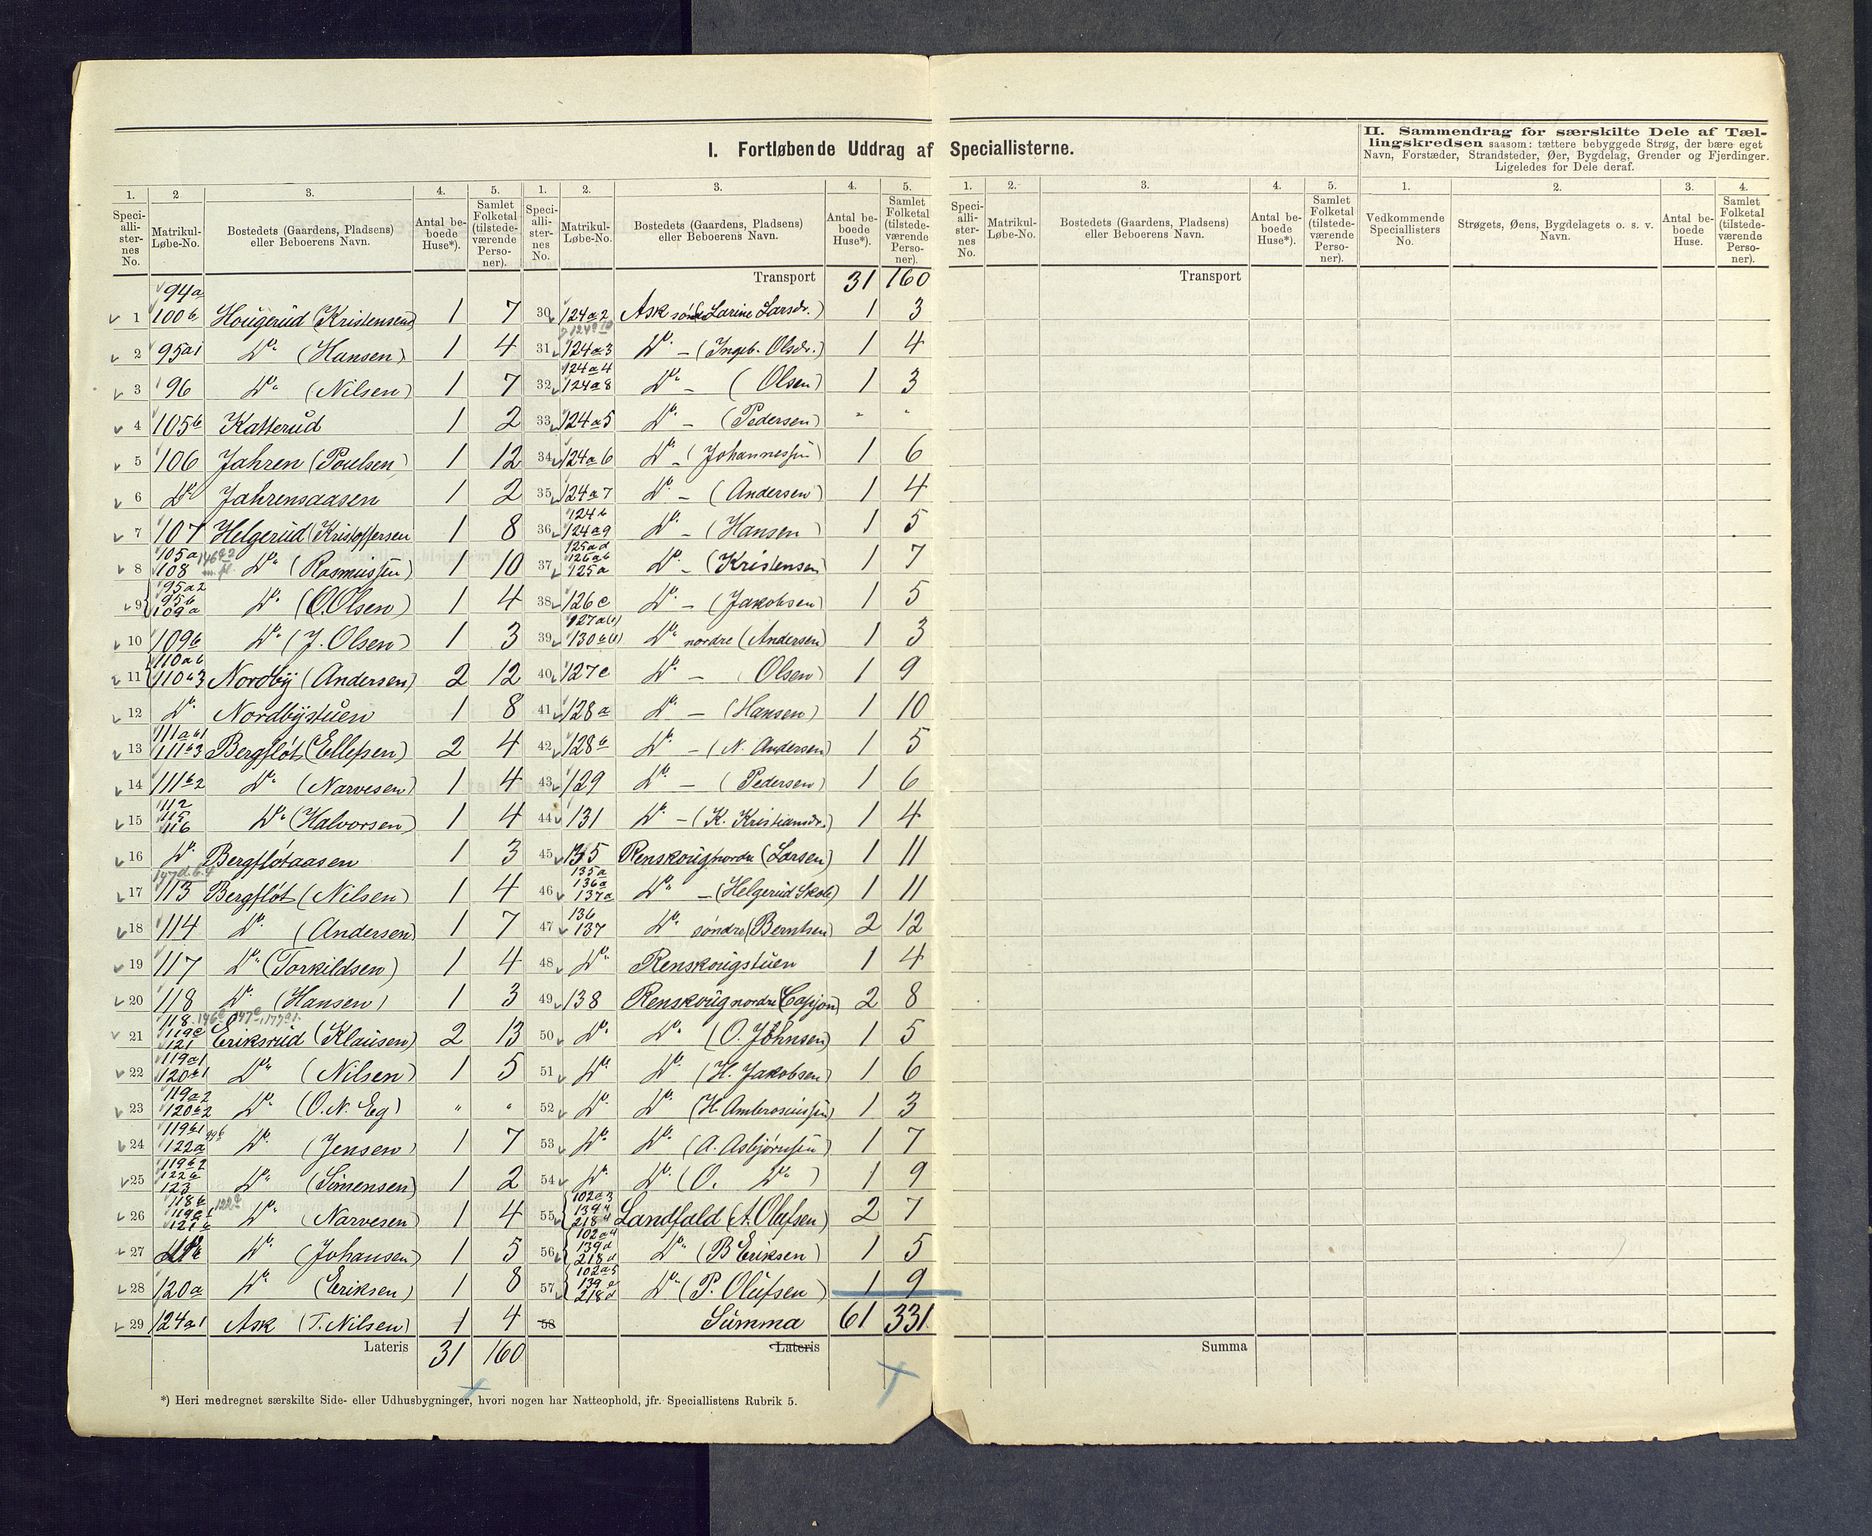 I. Fortløbende Uddrag af Speciallisterne.
II. Sammendrag for særskilte Dele af Tæl-
lingskredsen saasom: tættere bebyggede Strøg, der bære eget
Navn, Forstæder, Strandsteder, Øer, Bygdelag, Grender og Fjerdinger.
Ligeledes for Dele deraf.
1. 2 3. 4. 5.
Speci-alli-ster-nes No. Matrikul-Løbe-No. Bostedets (Gaardens, Pladsens) eller Beboerens Navn. Antal be-boede Huse*). Samlet Folketal (tilstede-værende Perso-ner).
94a
1 100b Hougerud (Kristensen) 1 7
2 95a1 Do (Hansen) 1 4
3 96 Do (Nilsen) 1 7
4 105b Katterud 1 2
5 106 Jahren (Poulsen) 1 12
6 Do Jahrensaasen 1 2
7 107 Helgerud (Kristoffersen 1 8
105a
8 108 Do (Rasmussen) 1 10
95a2
95b
9 109a Do (O. Olsen) 1 4
10 109b Do (J. Olsen) 1 3
110ab
11 110a3 Nordby (Andersen) 2 12
12 Do Nordbystuen 1 8
111ab1
13 111b3 Bergfløt (Ellefsen) 2 4
14 111b2 Do (Narvesen) 1 4
112
115
15 116 Do (Halvorsen) 1 4
16 Do Bergfløtaasen 1 3
17 113 Bergfløt (Nilsen) 1 4
18 114 Do (Andersen) 1 7
19 117 Do (Torkildsen) 1 4
20 118 Do (Hansen) 1 3
118
119c
21 121 Eriksrud (Klausen) 2 13
119a1
22 120b1 Do (Nilsen) 1 5
119a2
23 120b2 Do (O. N. Eg) " "
119b1
24 122a Do (Jensen) 1 7
119b2
122b
25 123 Do (Simensen) 1 2
118b
26 Do (Narvesen) 1 4
27 Do (Johansen) 1 5
28 120a Do (Eriksen) 1 8
29 124a1 Ask (T. Nilsen) 1 4
Lateris 31 160
1. 2. 3. 4. 5.
Speci-alli-ster-nes No. Matrikul-Løbe-No. Bostedets (Gaardens, Pladsens) eller Beboerens Navn. Antal be-boede Huse*). Samlet Folketal (tilstede-værende Perso-ner).
Transport 31 160
30 124a2 Ask søndre (Larine Larsdr.) 1 3
31 124a3 Do — (Ingeb. Olsdr.) 1 4
124a4
32 124a8 Do — (Olsen) 1 3
33 124a5 Do — (Pedersen) " "
34 124a6 Do — (Johannessen) 1 6
35 124a7 Do — (Andersen) 1 4
124b
36 124a9 Do — (Hansen) 1 5
125ad
126ab
37 125a Do — (Kristensen 1 7
38 126c Do — (Jakobsen) 1 5
39 Do nordre (Andersen) 1 3
40 127c Do — (Olsen) 1 9
41 128a Do — (Hansen) 1 10
42 128b Do — (N. Andersen) 1 5
43 129 Do — (Pedersen) 1 6
44 131 Do — (K. Kristiansdr.) 1 4
45 135 Renskougnordre (Larsen) 1 11
135a
136a
46 137a Do — (Helgerud Skole) 1 11
136
47 137 Do søndre (Berntsen) 2 12
48 Do Renskougstuen 1 4
49 138 Renskoug nordre 2 8
50 Do Do (O. Johnsen) 1 5
51 Do Do (H. Jakobsen) 1 6
52 Do Do (H Ambrosiussen) 1 3
53 Do Do (A. Asbjørnsen) 1 7
54 Do Do (O. Do) 1 9
102a3
55 Landfald (A. Olufsen) 2 7
102a4
139d
56 218d Do (B Eriksen) 1 5
102a5
57 218d Do (P. Olufsen) 1 9
58 Summa 61 331
Lateris
*) Heri medregnet særskilte Side- eller Udhusbygninger, hvori nogen har Natteophold, jfr. Speciallistens Rubrik 5.
1. 2. 3. 4. 5.
Speci-alli-ster-nes No. Matrikul-Løbe-No. Bostedets (Gaardens, Pladsens) eller Beboerens Navn. Antal be-boede Huse*). Samlet Folketal (tilstede-værende Perso-ner).
Transport
Summa
1. 2. 3. 4.
Vedkommende Speciallisters No. Strøgets, Øens, Bygdelagets o. s. v. Navn. Antal be-boede Huse. Samlet Folketal (tilstede-værende Perso-ner).